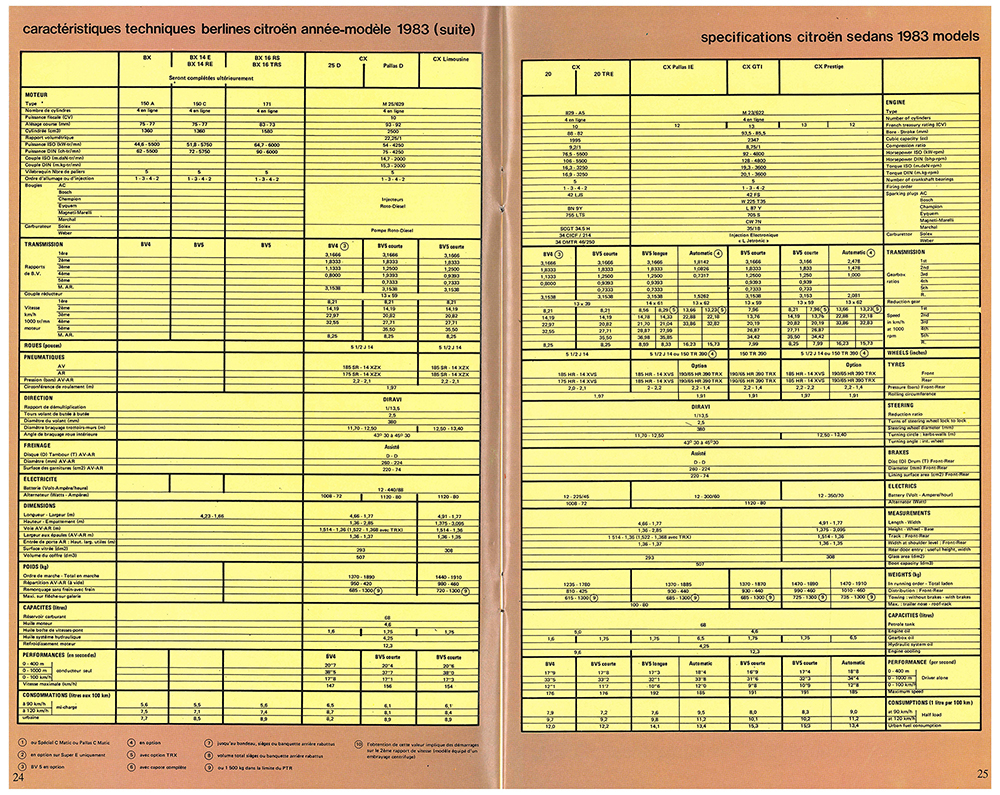 caractéristiques techniques berlines citroën année-modèle 1983 (suite)
BX BX 14 E BX 16 RS CX CX Limousine
BX 14 RE BX 16 TRS 25 D Pallas D
Seront complétées ultérieurement
MOTEUR
Type 150 A 150 C 171 M 25/629
Nombre de cylindres 4 en ligne 4 en ligne 4 en ligne 4 en ligne
Puissance fiscale (CV) 10
Alésage course (mm) 75 - 77 75 - 77 83 - 73 93 - 92
Cylindrée (cm3) 1360 1360 1580 2500
Rapport volumétrique 22,25/1
Puissance ISO (kW-tr/mn) 44,6 - 5500 51,8 - 5750 64,7 - 6000 54 - 4250
Puissance DIN (ch-tr/mn) 62 - 5500 72 - 5750 90 - 6000 75 - 4250
Couple ISO (m.daN-tr/mn) 14,7 - 2000
Couple DIN (m.kg-tr/mn) 15,3 - 2000
Vilebrequin Nbre de paliers 5 5 5 5
Ordre d'allumage ou d'injection 1 - 3 - 4 - 2 1 - 3 - 4 - 2 1 - 3 - 4 - 2 1 - 3 - 4 - 2
Bougies AC
Bosch
Champion Injecteurs
Eyquem Roto-Diesel
Magneti-Marelli
Marchal
Carburateur Solex Pompe Roto-Diesel
Weber
TRANSMISSION BV4 BV5 BV5 BV4 3 BV5 courte BV5 courte
1ère 3,1666 3,1666 3,1666
Rapports 2ème 1,8333 1,8333 1,8333
de B.V. 3ème 1,1333 1,2500 1,2500
4ème 0,8000 0,9393 0,9393
5ème 0,7333 0,7333
M. AR. 3,1538 3,1538 3,1538
Couple réducteur 13 x 59
1ère 8,21 8,21 8,21
Vitesse 2ème 14,19 14,19 14,19
km/h 3ème 22,97 20,82 20,82
1000 tr/mn 4ème 32,55 27,71 27,71
moteur 5ème 35,50 35,50
M. AR. 8,25 8,25 8,25
ROUES (pouces) 5 1/2 J 14 5 1/2 J 14
PNEUMATIQUES
AV 185 SR - 14 XZX 185 SR - 14 XZX
AR 175 SR - 14 XZX 175 SR - 14 XZX
Pression (bars) AV-AR 2,2 - 2,1 2,2 - 2,1
Circonférence de roulement (m) 1,97
DIRECTION DIRAVI
Rapport de démultiplication 1/13,5
Tours volant de butée à butée 2,5
Diamètre du volant (mm) 380
Diamètre braquage trottoirs-murs (m) 11,70 - 12,50 12,50 - 13,40
Angle de braquage roue intérieure 43° 30 à 45° 30
FREINAGE Assisté
Disque (D) Tambour (T) AV-AR D - D
Diamètre (mm) AV-AR 260 - 224
Surface des garnitures (cm2) AV-AR 220 - 74
ELECTRICITE
Batterie (Volt-Ampère/heure) 12 - 440/88
Alternateur (Watts - Ampères) 1008 - 72 1120 - 80 1120 - 80
DIMENSIONS
Longueur - Largeur (m) 4,23 - 1,66 4,66 - 1,77 4,91 - 1,77
Hauteur - Empattement (m) 1,36 - 2,85 1,375 - 3,095
Voie AV-AR (m) 1,514 - 1,36 (1,522 - 1,368 avec TRX) 1,514 - 1,36
Largeur aux épaules (AV-AR m) 1,36 - 1,37 1,36 - 1,35
Entrée de porte AR : Haut. larg. utiles (m)
Surface vitrée (dm2) 293 308
Volume du coffre (dm3) 507
POIDS (kg)
Ordre de marche - Total en marche 1370 - 1890 1440 - 1910
Répartition AV-AR (à vide) 950 - 420 980 - 460
Remorquage sans frein-avec frein 685 - 1300 9 720 - 1300 9
Maxi. sur flèche-sur galerie
CAPACITES (litres)
Réservoir carburant 68
Huile moteur 4,6
Huile boîte de vitesses-pont 1,6 1,75 1,75
Huile système hydraulique 4,25
Refroidissement moteur 12,3
PERFORMANCES (en secondes) BV4 BV5 courte BV5 courte
0 - 400 m 20"7 20"4 20"6
0 - 1000 m conducteur seul 38"5 37"7 38"5
0 - 100 km/h 17"8 17"1 17"3
Vitesse maximale (km/h) 147 156 154
CONSOMMATIONS (litres aux 100 km)
à 90 km/h mi-charge 5,6 5,5 5,6 6,5 6,1 6,1
à 120 km/h 7,5 7,1 7,4 8,7 8,1 8,4
urbaine 7,7 8,5 8,9 8,2 8,9 8,9
1 ou Spécial C Matic ou Pallas C Matic
2 en option sur Super E uniquement
3 BV 5 en option
4 en option
5 avec option TRX
6 avec capote complète
7 jusqu'au bandeau, sièges ou banquette arrière rabattus
8 volume total sièges ou banquette arrière rabattus
9 ou 1 500 kg dans la limite du PTR
10 l'obtention de cette valeur implique des démarrages
sur le 2ème rapport de vitesse (modèle équipé d'un
embrayage centrifuge)
24
specifications citroën sedans 1983 models
CX CX Pallas IE CX GTI CX Prestige
20 20 TRE
ENGINE
829 - A5 M 23/622 Type
4 en ligne 4 en ligne Number of cylinders
10 12 13 13 12 French treasury rating (CV)
88 - 82 93,5 - 85,5 Bore - Stroke (mm)
1995 2347 Cubic capacity (cc)
9,2/1 8,75/1 Compression ratio
76,5 - 5500 92 - 4800 Horsepower ISO (kW-rpm)
106 - 5500 128 - 4800 Horsepower DIN (bhp-rpm)
16,3 - 3250 19,3 - 3600 Torque ISO (m.daN-rpm)
16,9 - 3250 20,1 - 3600 Torque DIN (m.kg-rpm)
5 5 Number of crankshaft bearings
1 - 3 - 4 - 2 1 - 3 - 4 - 2 Firing order
42 LJS 42 FS Sparking plugs AC
W 225 T35 Bosch
BN 9Y L 87 Y Champion
755 LTS 705 S Eyquem
CW 7N Magneti-Marelli
35/1B Marchal
34 CICF / 214 Injection Electronique Carburettor Solex
34 DMTR 46/250 « L Jetronic » Weber
BV4 3 BV5 courte BV5 longue Automatic 4 BV5 courte BV5 courte Automatic 4 TRANSMISSION
3,1666 3,1666 3,166 1,8142 3,166 3,166 2,478 1st
1,8333 1,8333 1,8333 1,0826 1,8333 1,833 1,478 2nd
1,1333 1,2500 1,250 0,7317 1,2500 1,250 1,000 Gearbox 3rd
0,8000 0,9393 0,9393 0,9393 0,939 ratios 4th
0,7333 0,7333 0,7333 0,733 5th
3,1538 3,1538 3,1538 1,5262 3,1538 3,153 2,081 R.
13 x 59 14 x 61 13 x 62 13 x 59 13 x 59 13 x 62 Reduction gear
8,21 8,21 8,56 8,29 5 13,66 13,23 5 7,96 8,21 7,96 5 13,66 13,23 5 1st
14,19 14,19 14,78 14,33 22,88 22,18 13,76 14,19 13,76 22,88 22,18 Speed 2nd
22,97 20,82 21,70 21,04 33,86 32,82 20,19 20,82 20,19 33,86 32,83 in km/h 3rd
32,55 27,71 28,87 27,99 26,87 27,71 26,87 at 1000 4th
35,50 36,98 35,85 34,42 35,50 34,42 rpm 5th
8,25 8,25 8,59 8,33 16,23 15,73 7,99 8,25 7,99 16,23 15,73 R.
5 1/2 J 14 5 1/2 J 14 ou 150 TR 390 4 150 TR 390 5 1/2 J 14 ou 150 TR 390 4 WHEELS (inches)
Option Option TYRES
185 HR - 14 XVS 185 HR - 14 XVS 190/65 HR 390 TRX 190/65 HR 390 TRX 185 HR - 14 XVS 190/65 HR 390 TRX Front
175 HR - 14 XVS 175 HR - 14 XVS 190/65 HR 390 TRX 190/65 HR 390 TRX 175 HR - 14 XVS 190/65 HR 390 TRX Rear
2,0 - 2,1 2,2 - 2,1 2,2 - 1,4 2,2 - 1,4 2,2 - 2,2 2,2 - 1,4 Pressure (bars) Front-Rear
1,97 1,91 1,91 1,97 1,91 Rolling circumference
DIRAVI STEERING
1/13,5 Reduction ratio
2,5 Turns of steering wheel lock to lock
380 Steering wheel diameter (mm)
11,70 - 12,50 12,50 - 13,40 Turning circle : kerbs-walls (m)
43° 30 à 45°30 Turning angle : int. wheel
Assisté BRAKES
D - D Disc (D) Drum (T) Front-Rear
260 - 224 Diameter (mm) Front-Rear
220 - 74 Lining surface area (cm2) Front-Rear
ELECTRICS
12 - 225/45 12 - 300/60 12 - 350/70 Battery (Volt - Ampere/hour)
1008 - 72 1120 - 80 Alternator (Watt)
MEASUREMENTS
4,66 - 1,77 4,91 - 1,77 Length - Width
1,36 - 2,85 1,375 - 3,095 Height - Wheel - Base
1 514 - 1,36 (1,522 - 1,368 avec TRX) 1,514 - 1,36 Track : Front-Rear
1,36 - 1,37 1,36 - 1,35 Width at shoulder level : Front-Rear
Rear door entry : useful height, width
293 308 Glass area (dm2)
507 Boot capacity (dm3)
WEIGHTS (kg)
1235 - 1780 1370 - 1885 1370 - 1870 1470 - 1890 1470 - 1910 In running order - Total laden
810 - 425 930 - 440 930 - 440 990 - 460 1010 - 460 Distribution : Front-Rear
615 - 1300 9 685 - 1300 9 685 - 1300 9 725 - 1300 9 735 - 1300 9 Towing : without brakes - with brakes
100 - 80 Max. : trailer nose - roof-rack
CAPACITIES (litres)
68 Petrole tank
5,0 4,6 Engine oil
1,6 1,75 1,75 6,5 1,75 1,75 6,5 Gearbox oil
4,25 Hydraulic system oil
9,6 12,3 Engine cooling
BV4 BV5 courte BV5 longue Automatic BV5 courte BV5 courte Automatic PERFORMANCE (per second)
17"9 17"8 17"3 18"4 16"9 17"3 18"4 0 - 400 m
33"5 33"2 32"1 33"8 31"6 32"3 34"4 0 - 1000 m Driver alone
12"1 11"7 10"6 12"0 9"8 10"9 12"8 0 - 100 km/h
176 176 192 185 191 191 185 Maximum speed
CONSUMPTIONS (1 litre par 100 km)
7,9 7,2 7,6 9,5 8,0 8,3 9,0 at 90 km/h Half load
9,7 9,2 9,8 11,2 10,1 10,2 11,2 at 120 km/h
12,0 12,2 14,1 13,4 15,3 15,3 13,4 Urban fuel consumption
25